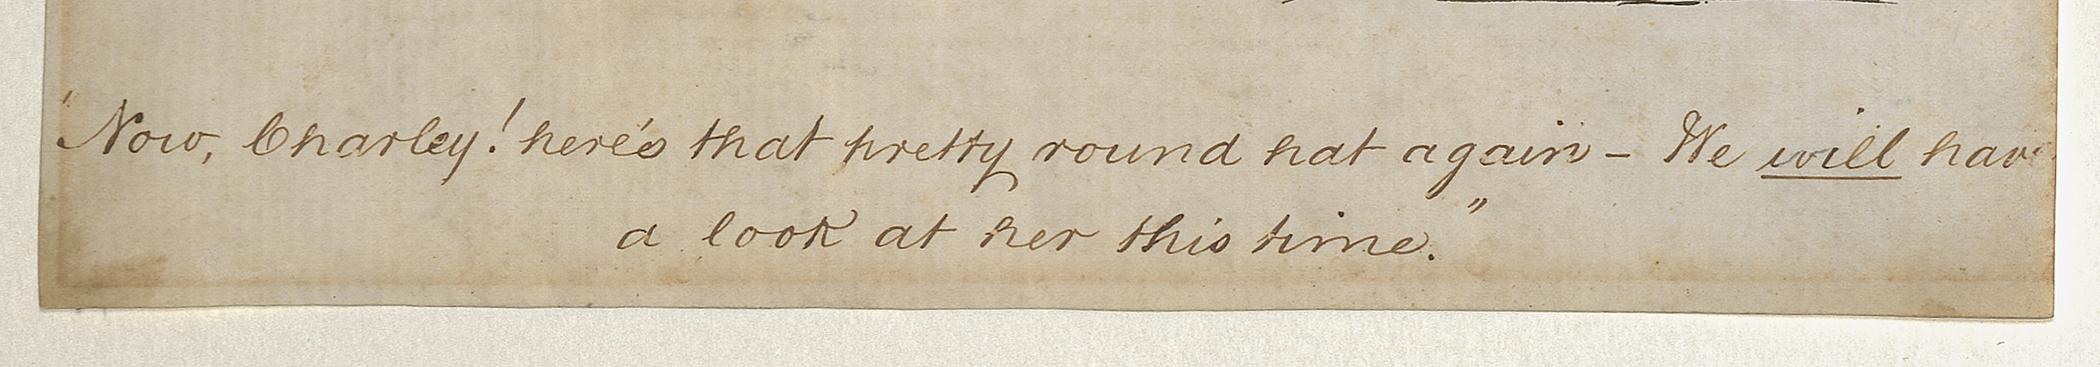 'Now, Charley! here's that pretty round hat again – We will hav
a look at her this time."